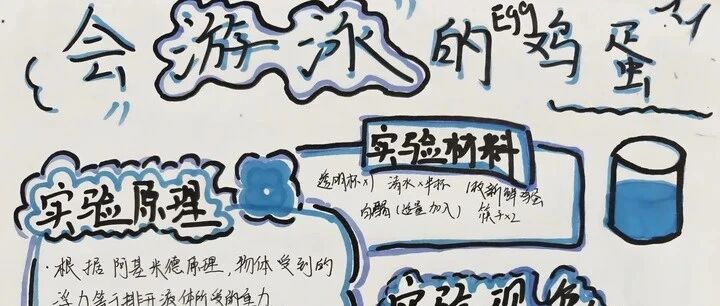 会游泳的鸡蛋
Egg
实验材料
透明杯×1 清水×半杯 1枚新鲜鸡蛋
白醋(适量加入) 筷子×2
实验原理
·根据阿基米德原理,物体受到的
浮力等于排开液体所受的重力
实验现象